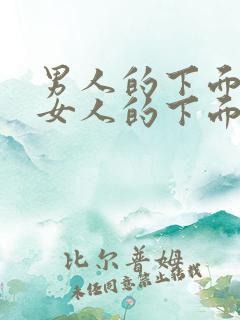 男人的下而
女人的下而
比尔普姆
未任同意禁止转载